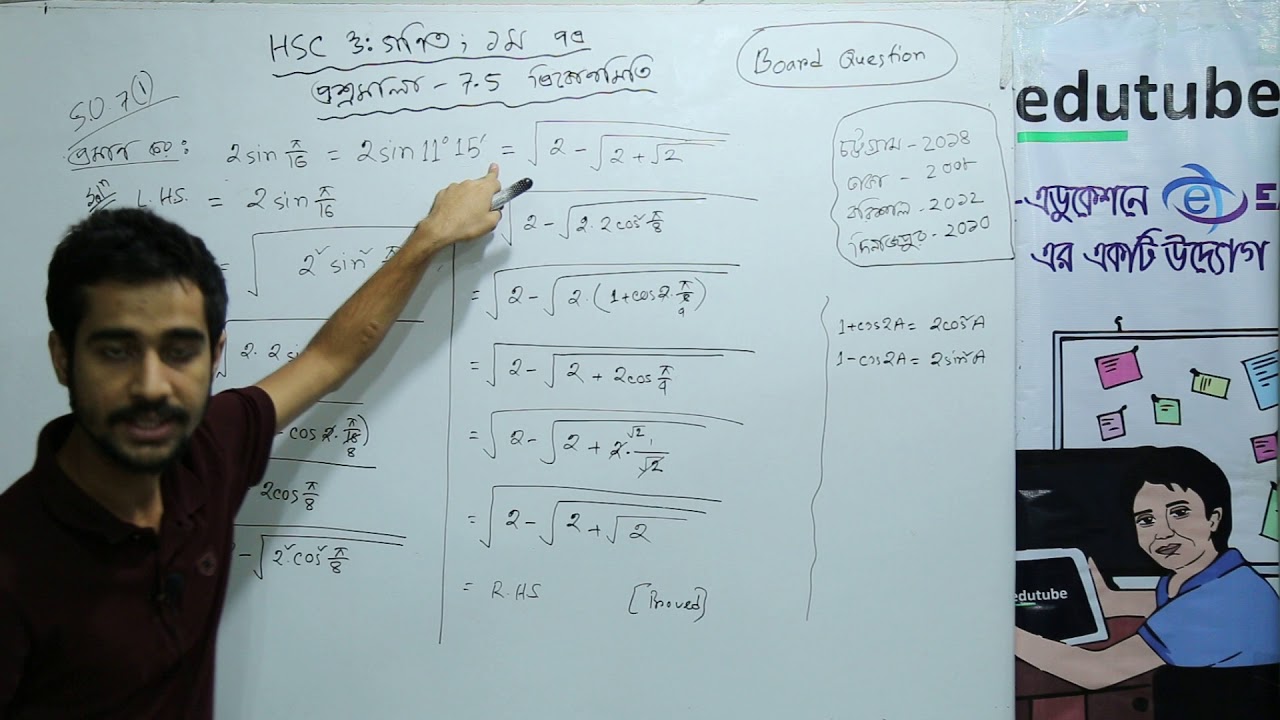 HSC উ: গণিত; ১ম পত্র
প্রশ্নমালা - 7.5 ত্রিকোণমিতি
Board Question
SO 7 ①
প্রমাণ কর: 2 sin π/16 = 2 sin 11° 15′ = √(2 - √(2 + √2))
Solⁿ L.H.S. = 2 sin π/16
= √(2² sin² π
2. 2 sin
cos 2. π/16)
8
2cos π/8
- √(2² cos² π/8)
√(2 - √(2. 2cos² π/8))
= √(2 - √(2. (1+cos2. π/8)))
4
= √(2 - √(2 + 2cos π/4))
= √(2 - √(2 + 2. 1/√2))
√2
= √(2 - √(2 + √2))
= R.HS [Proved]
চট্টগ্রাম - ২০১৪
ঢাকা - ২০০৮
বরিশাল - ২০১২
দিনাজপুর - ২০১০
1+cos2A = 2cos²A
1-cos2A = 2sin²A
edutube
-এডুকেশনে e E
এর একটি উদ্যোগ
edutube